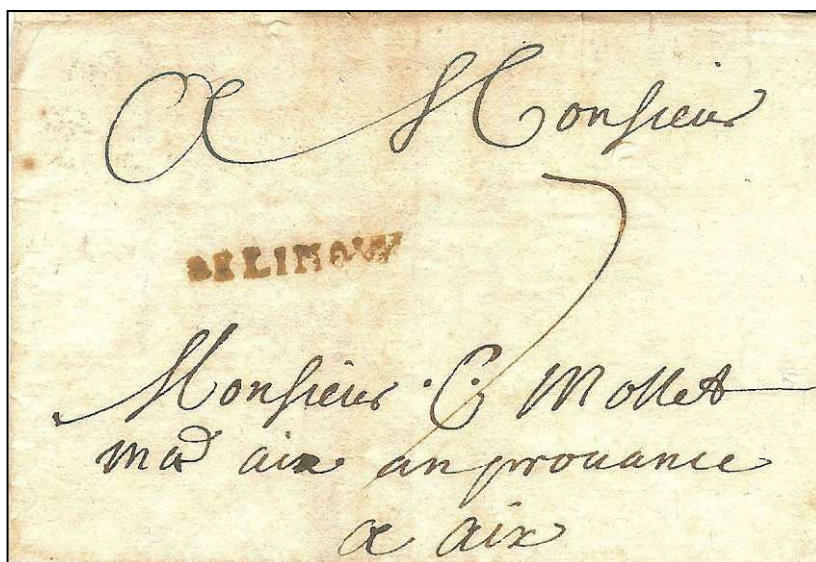 A Monsieur
7
DELIMOUX
Monsieur .C. Mollet
mad aix an prouance
a aix